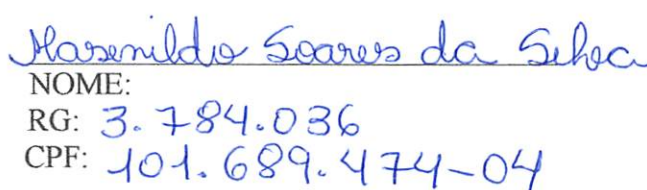 Marenildo Soares da Silva
NOME:
RG: 3.784.036
CPF: 101.689.474-04